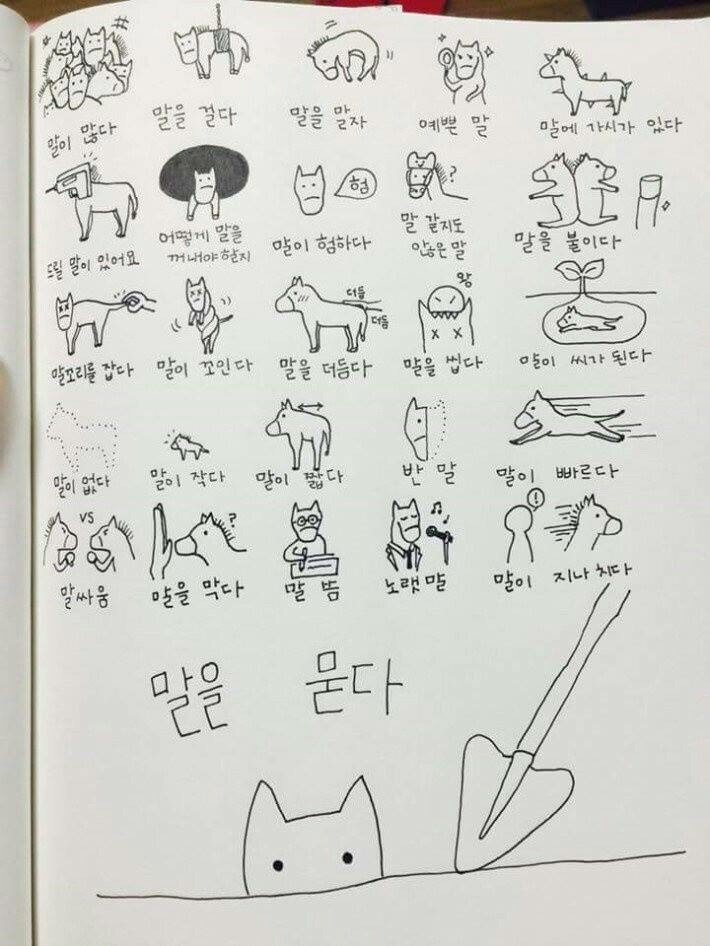 말이 많다
말을 걸다
말을 말자
예쁜 말
말에 가시가 있다
드릴 말이 있어요
어떻게 말을
꺼내야 할지
험
말이 험하다
?
말 같지도
않은 말
말을 붙이다
말꼬리를 잡다
말이 꼬인다
더듬
더듬
말을 더듬다
왕
말을 씹다
말이 씨가 된다
말이 없다
말이 작다
말이 짧다
반 말
말이 빠르다
VS
말싸움
?
말을 막다
말 뜸
노랫말
!
말이 지나치다
말을 묻다